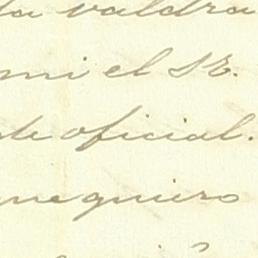 la valdra
mi el Sr.
de oficial.
me quiero